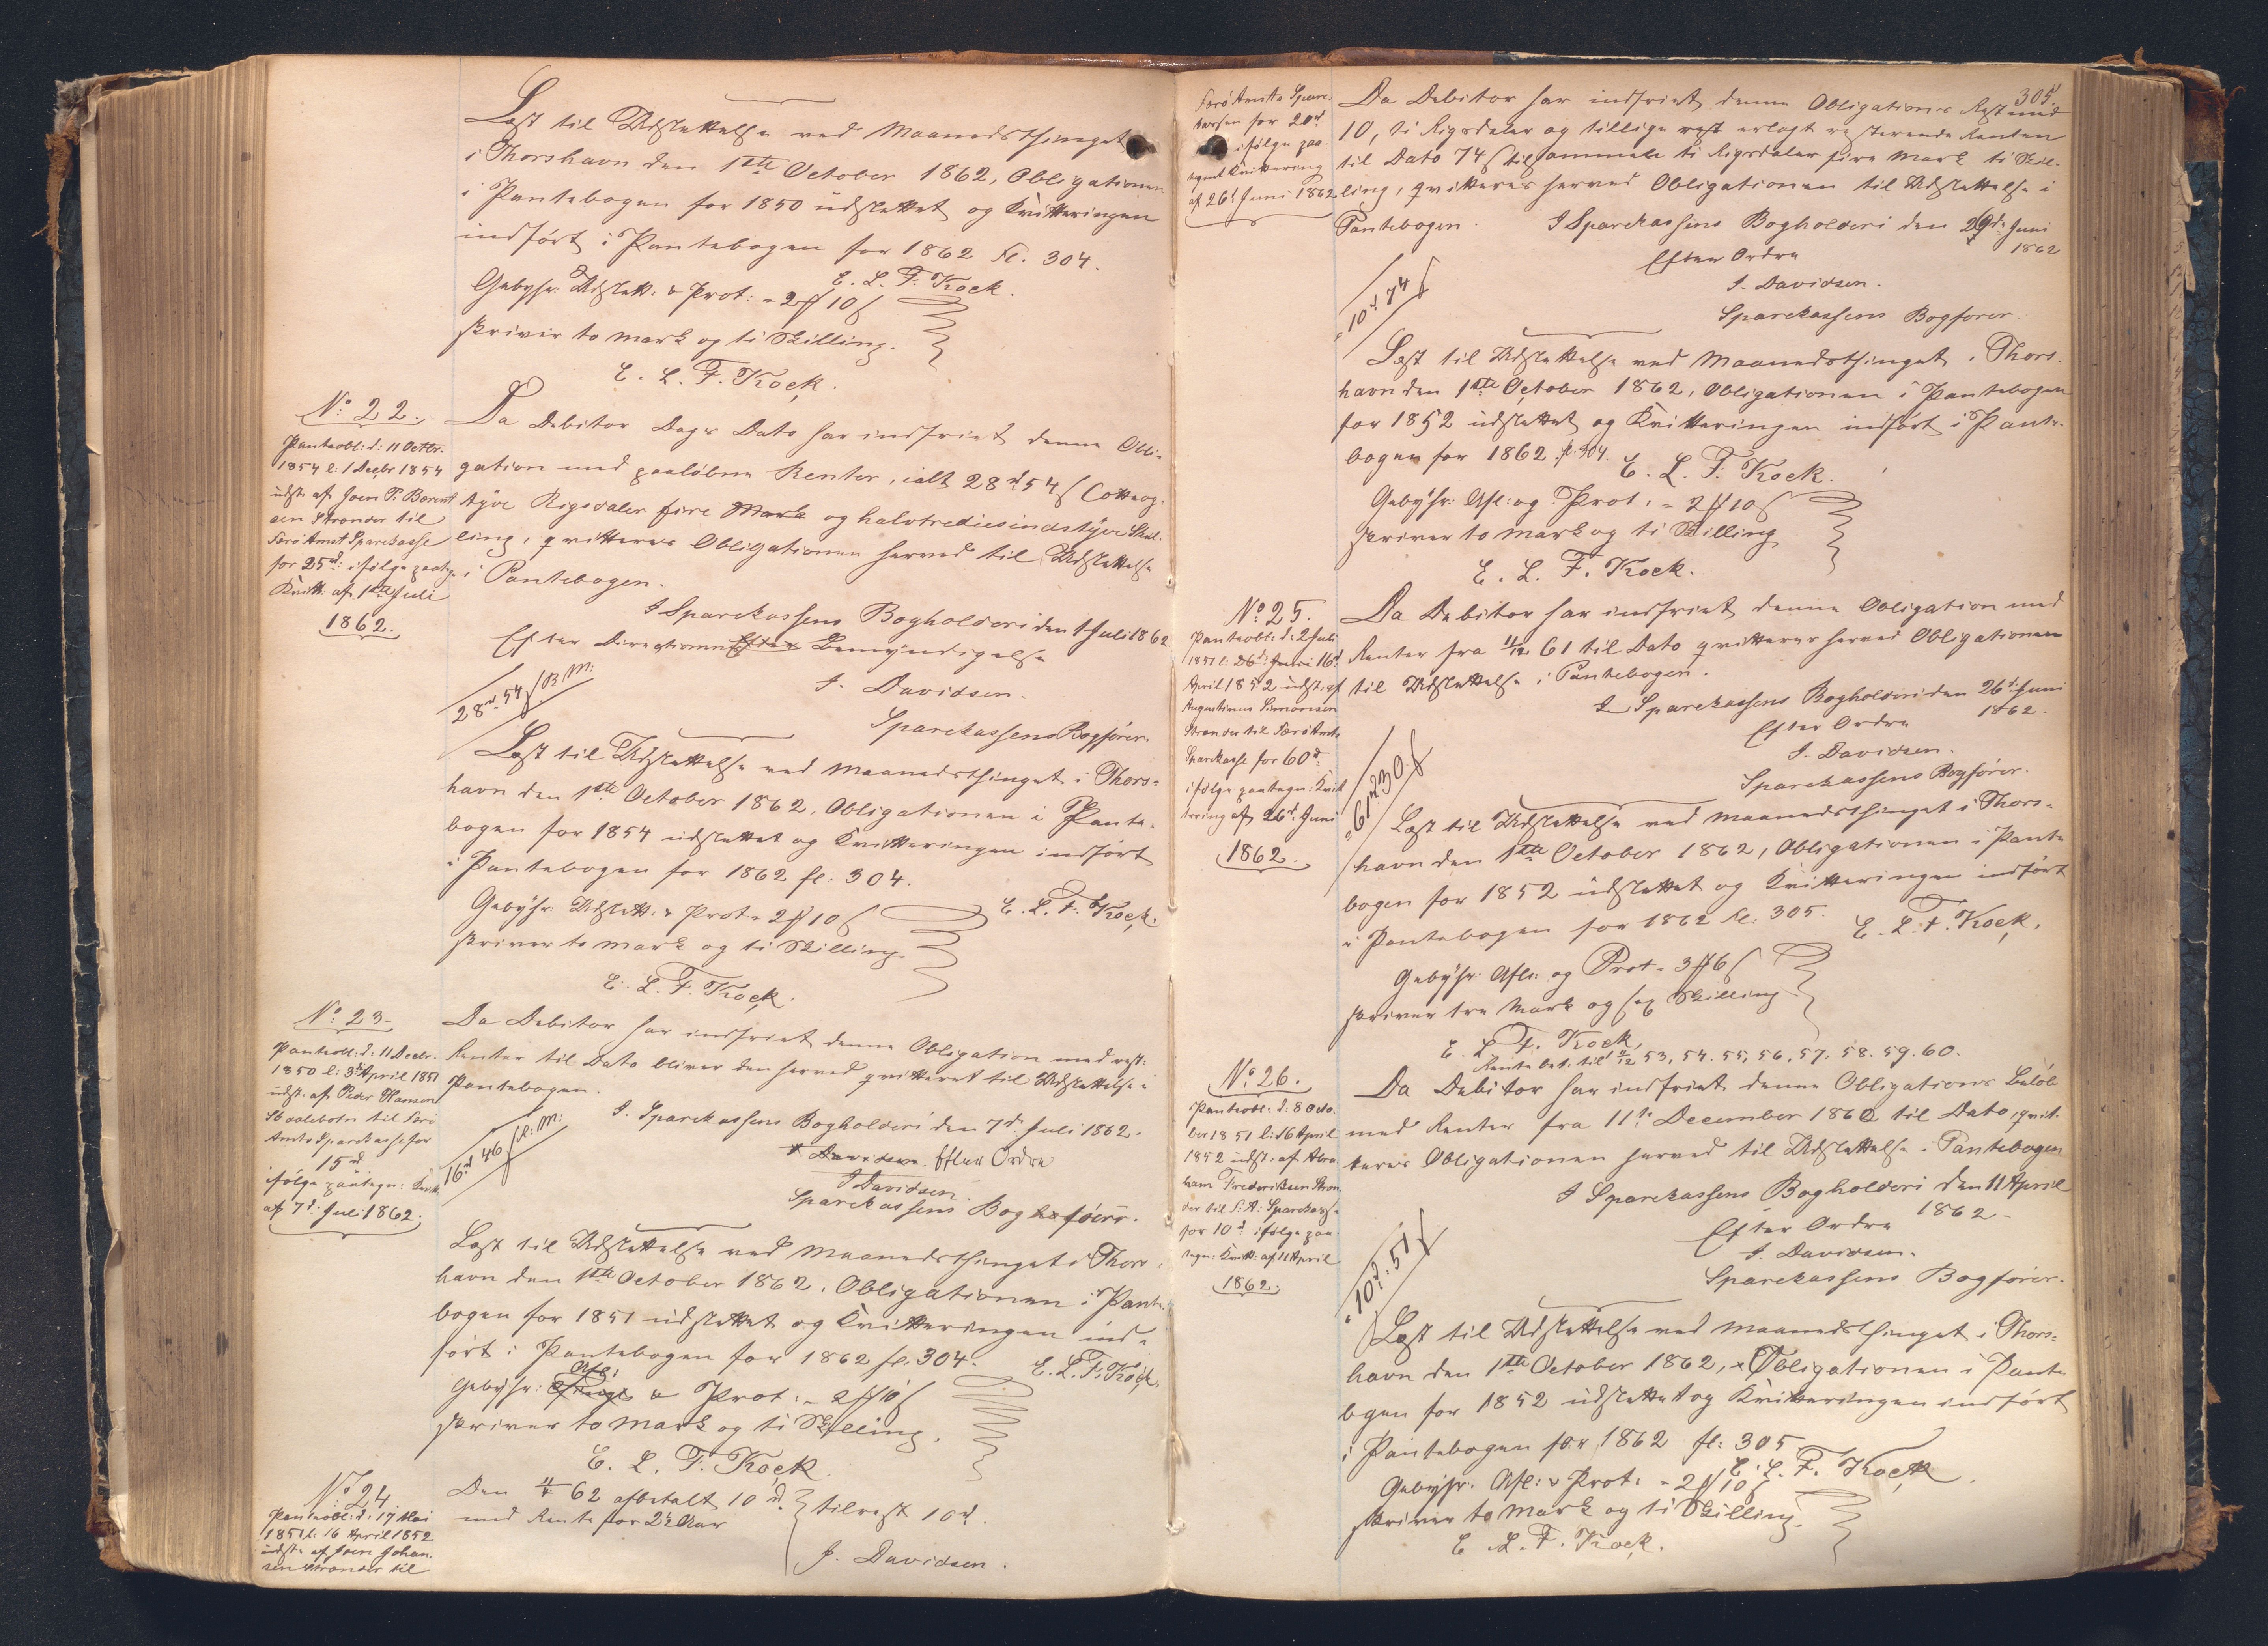 Læst til Udslettelse ved Maanedsthinget
i Thorshavn den 1ste October 1862, Obligationen
i Pantebogen for 1850 udslettet og Kvitteringen
indført i Pantebogen for 1862 fl. 304.
E. L. F. Kock.
Gebyhr: Udslett: & Prot: = 2 ℔ 10 ß
skriver to Mark og ti Skilling.
E. L. F. Kock.
No: 22.
Panteobl: d: 11 Octbr.
1854 l: 1 Decbr 1854
udst. af Joen P. Berent
sen Strander til
Færø Amt Sparekasse
for 25 rd: ifølge paategn
Kvitt: af 1ste Juli
1862.
Da Debitor Dags Dato har indfriet denne Obli-
gation med paaløbne Renter, ialt 28 rd 54 ß (otteog-
tyve Rigsdaler fire Mark og halvtrediesindstyve Skil-
ling, qvitteres Obligationen herved til Udslettelse
i Pantebogen.
I Sparekassens Bogholderi den 1 Juli 1862
Efter Directionens Efter Bemyndigelse
J. Davidsen.
Sparekassens Bogfører.
28 rd. 54 ß R. M:
Læst til Udslettelse ved Maanedsthinget i Thors-
havn den 1ste October 1862, Obligationen i Pante-
bogen for 1854 udslettet og Kvitteringen indført
i Pantebogen for 1862 fl. 304.
E. L. F. Kock.
Gebyhr: Udslett: & Prot = 2 ℔ 10 ß
skriver to Mark og ti Skilling.
E. L. F. Kock.
No: 23.
Panteobl: d: 11 Decbr.
1850 l: 3die April 1851
udst. af Peder Hansen
til Færø
Amts Sparekasse for
15 rd
ifølge paategn: Kvitt
af 7d: Juli 1862.
Da Debitor har indfriet denne Obligation med rest:
Renter til Dato bliver den herved qvitteret til Udslettelse i
Pantebogen.
I. Sparekassens Bogholderi den 7d: Juli 1862.
J. Davidsen. Efter Ordre
J. Davidsen.
Sparekassens Bogfører.
16 rd 46 ß R: M:
Læst til Udslettelse ved Maanedsthinget i Thors
havn den 1ste October 1862, Obligationen i Pante
bogen for 1851 udslettet og Kvitteringen ind-
ført i Pantebogen for 1862 fl. 304.
E. L. F. Kock.
Gebyhr: Afl: & Prot: = 2 ℔ 10 ß
skriver to Mark og ti Skilling.
E. L. F. Kock.
No 24
Panteobl: d: 17 Mai
1851 l: 16 April 1852
udst. af Joen Johan-
sen Strander til
Den 62 afbetalt 10 rd. tilrest 10 rd.
med Rente for 2½ Aar
J. Davidsen.
305.
Færø Amts Spare
kassen for 20 rd
ifølge paa
tegnet Kvittering
af 26d Juni 1862
Da Debitor har indfriet denne Obligations Rest med
10, ti Rigsdaler og tillige rest erlagt resterende Renten
til Dato 74 ß tilsammen ti Rigsdaler fire Mark ti Skil-
ling, qvitteres herved Obligationen til Udslettelse i
Pantebogen.
I Sparekassens Bogholderi den 26d: Juni
1862
Efter Ordre
J. Davidsen.
Sparekassens Bogfører.
10 rd 74 ß
Læst til Udslettelse ved Maanedsthinget i Thors-
havn den 1ste October 1862, Obligationen i Pantebogen
for 1852 udslettet og Kvitteringen indført i Pante-
bogen for 1862 fl. 304.
E. L. F. Kock.
Gebyhr: Afl: og Prot: = 2 ℔ 10 ß
skriver to Mark og ti Skilling
E. L. F. Kock.
No 25.
Panteobl: d: 2 Juli
1851 l: 16d
April 1852 udst. af
Augustinus Simonsen
Strander til Færø Amts
Sparekasse for 60 rd
ifølge paategn: Kvit
tering af 26d. Juni
1862.
Da Debitor har indfriet denne Obligation med
Renter fra 11/12 61 til Dato qvitteres herved Obligationen
til Udslettelse i Pantebogen.
I Sparekassens Bogholderi den 26d: Juni
1862.
Efter Ordre
J. Davidsen.
Sparekassens Bogfører.
61 rd 30 ß
Læst til Udslettelse ved Maanedsthinget i Thors-
havn den 1ste October 1862, Obligationen i Pante
bogen for 1852 udslettet og Kvitteringen indført
i Pantebogen for 1862 fl: 305.
E. L. F. Kock.
Gebyhr: Afl: og Prot = 3 ℔ 6 ß
skriver tre Mark og sex Skilling
E. L. F. Kock.
Rente bet. til 53, 54. 55, 56, 57. 58. 59. 60.
No. 26.
Panteobl: d: 8 Octo-
ber 1851 l: 16 April
1852 udst. af Abra
ham Frederiksen Stran
der til F. A: Sparekasse
for 10 rd ifølge paa
tegn: Kvitt: af 11 April
1862.
Da Debitor har indfriet denne Obligations Beløb
med Renter fra 11te December 1860 til Dato, qvit-
teres Obligationen herved til Udslettelse i Pantebogen
I Sparekassens Bogholderi den 11 April
1862
Efter Ordre
J. Davidsen.
Sparekassens Bogfører.
10 rd: 51 ß
Læst til Udslettelse ved Maanedsthinget i Thors-
havn den 1ste October 1862, Obligationen i Pante
bgen for 1852 udslettet og Kvitteringen indført
i Pantebogen for 1862 fl: 305
E. L. F. Kock.
Gebyhr. Afl: & Prot: = 2 ℔ 10 ß
skriver to Mark og ti Skilling.
E. L. F. Kock.